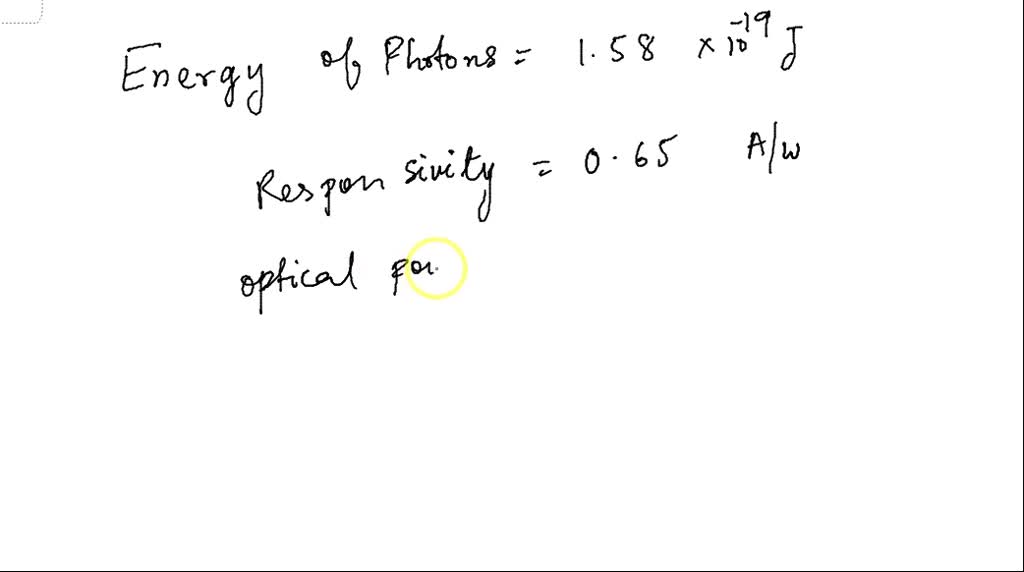 Energy of Photons = 1.58 × 10⁻¹⁹ J
Responsivity = 0.65 A/W
optical po